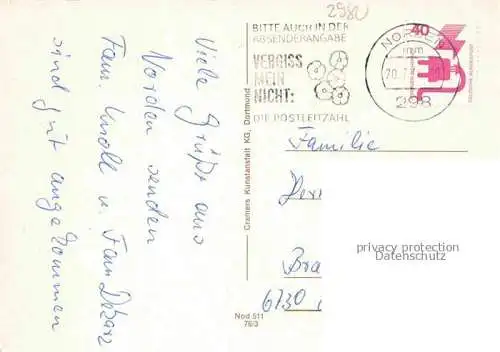 2980
BITTE AUCH IN DER
ABSENDERANGABE
VERGISS
MEIN
NICHT:
DIE POSTLEITZAHL
NORDEN
mm
20.7.
298
40
DEUTSCHE BUNDESPOST
Viele Grüße aus
Norden senden
Fam. Knoll u. Fam
sind gut angekommen
Cramers Kunstanstalt KG, Dortmund
Nod 511
76/3
Familie
Herr
Bra
6730
privacy protection
Datenschutz